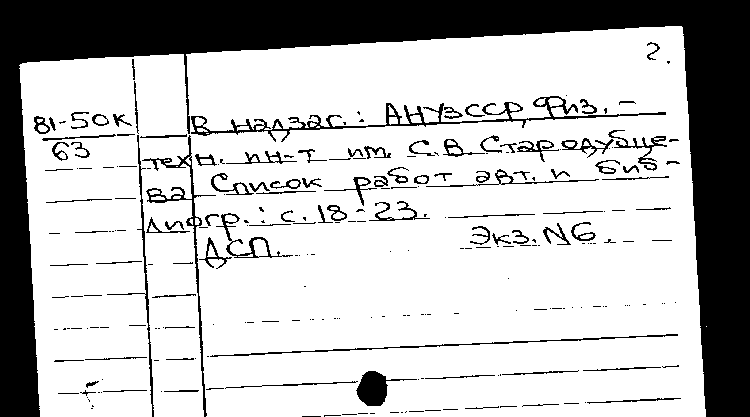 2.
81-50К
63
В надзаг.: АН УзССР, Физ.-
техн. ин-т им. С.В. Стародубце-
ва. Список работ авт. и биб-
лиогр.: с. 18-23.
ДСП. Экз. N6.